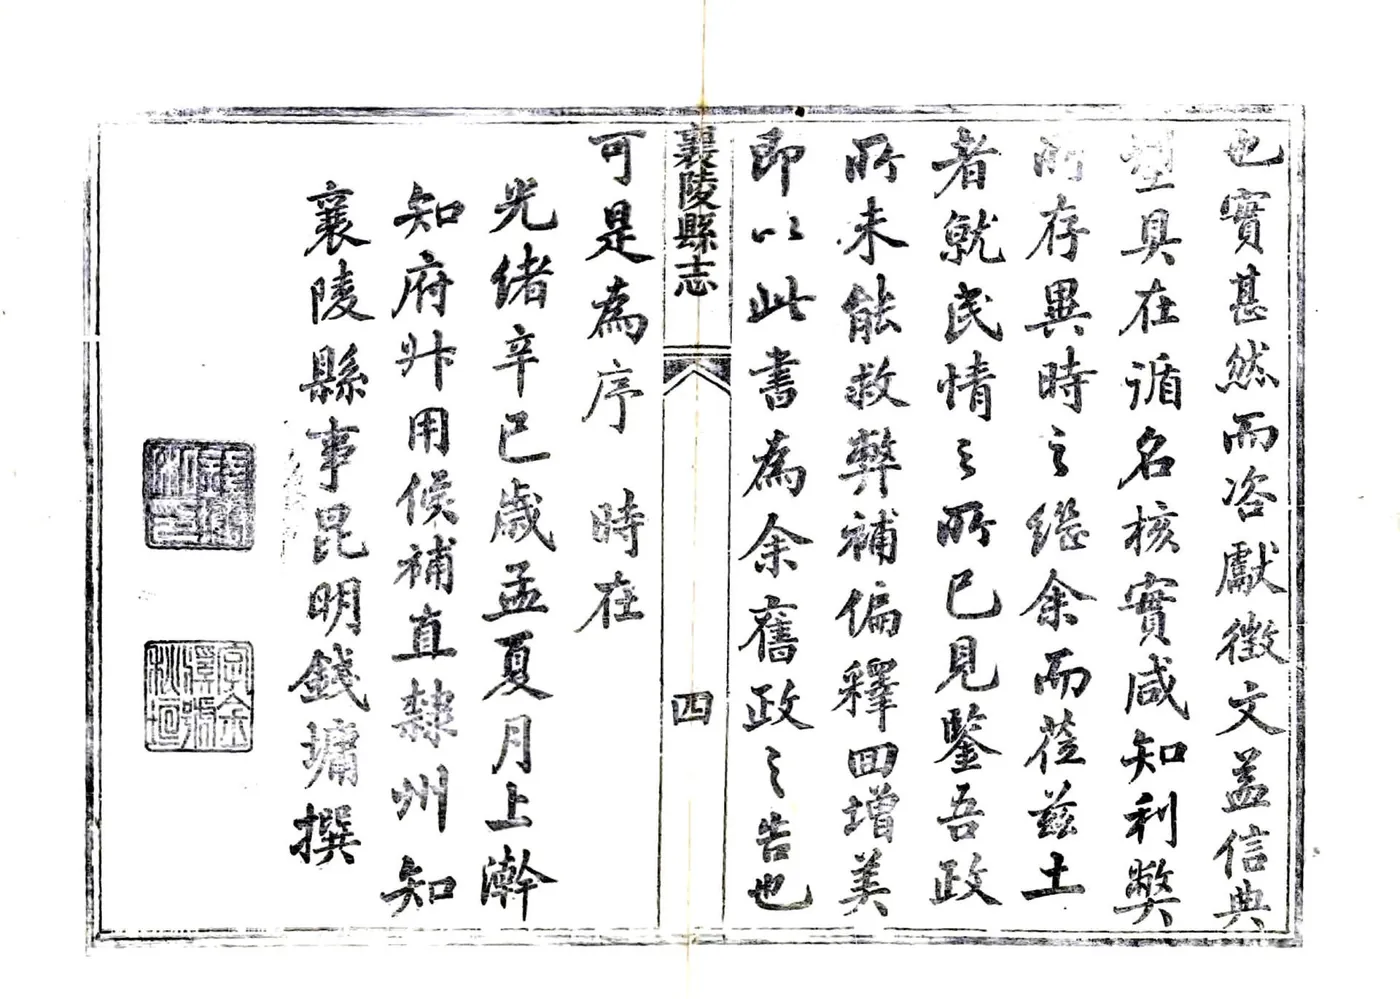 也實甚然而咨獻徵文益信典
型具在循名核實咸知利弊
所存異時之繼余而莅茲土
者就民情之所已見鑒吾政
所未能救弊補偏釋回增美
即以此書為余舊政之告也
襄陵縣志
四
可是為序 時在
光緒辛巳歲孟夏月上澣
知府升用候補直隸州知
襄陵縣事昆明錢墉撰
字余
溪號
秋垣